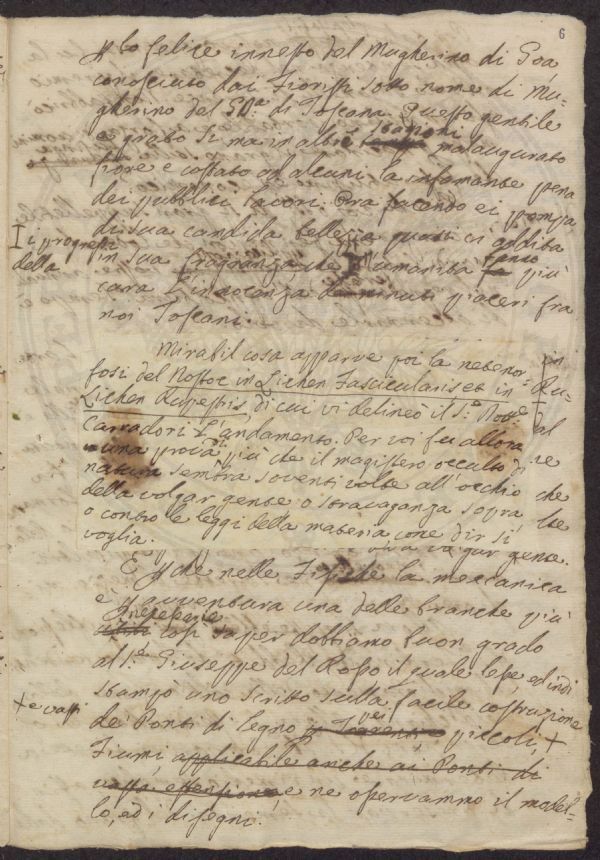 6
p lo felice innesto del Mugherino di Goa
conosciuto dai Fioristi sotto nome di Mu=
gherino del G.D.ca di Toscana. Questo gentile
e grato si ma in altre stagioni malaugurato
fiore è costato ad alcuni la infamante pena
dei pubblici lavori. Ora facendo ei pompa
di sua candida bellezza quasi ci addita
I i progressi
della
in sua fragranza che umanità fanno più
cara l'innocenza di minuti piaceri fra
noi Toscani.
Mirabil cosa apparve poi la metamor=
fosi del Nostoc in Lichen Fascicularis et in
Lichen Rupestris, di cui vi delineò il S.r Dott.e
Carradori l'andamento. Per voi fu allora
una prova di più che il magistero occulto di
natura sembra soventi volte all'occhio
della volgar gente o stravaganza sopra,
o contro le leggi della materia come dir si
voglia.
in
Ru=
al
ne
che
lte
volgar gente.
E pchè nelle Fisiche la meccanica
è p avventura una delle branche più
necessarie
così saper dobbiamo buon grado
al S.r Giuseppe del Rosso il quale lesse, ed indi
stampò uno scritto sulla facile costruzione
+ e vasti
de' Ponti di legno pei piccoli, +
Fiumi, applicabile anche ai Ponti di
vasta estensione, e ne osservammo il model=
lo, ed i disegni.